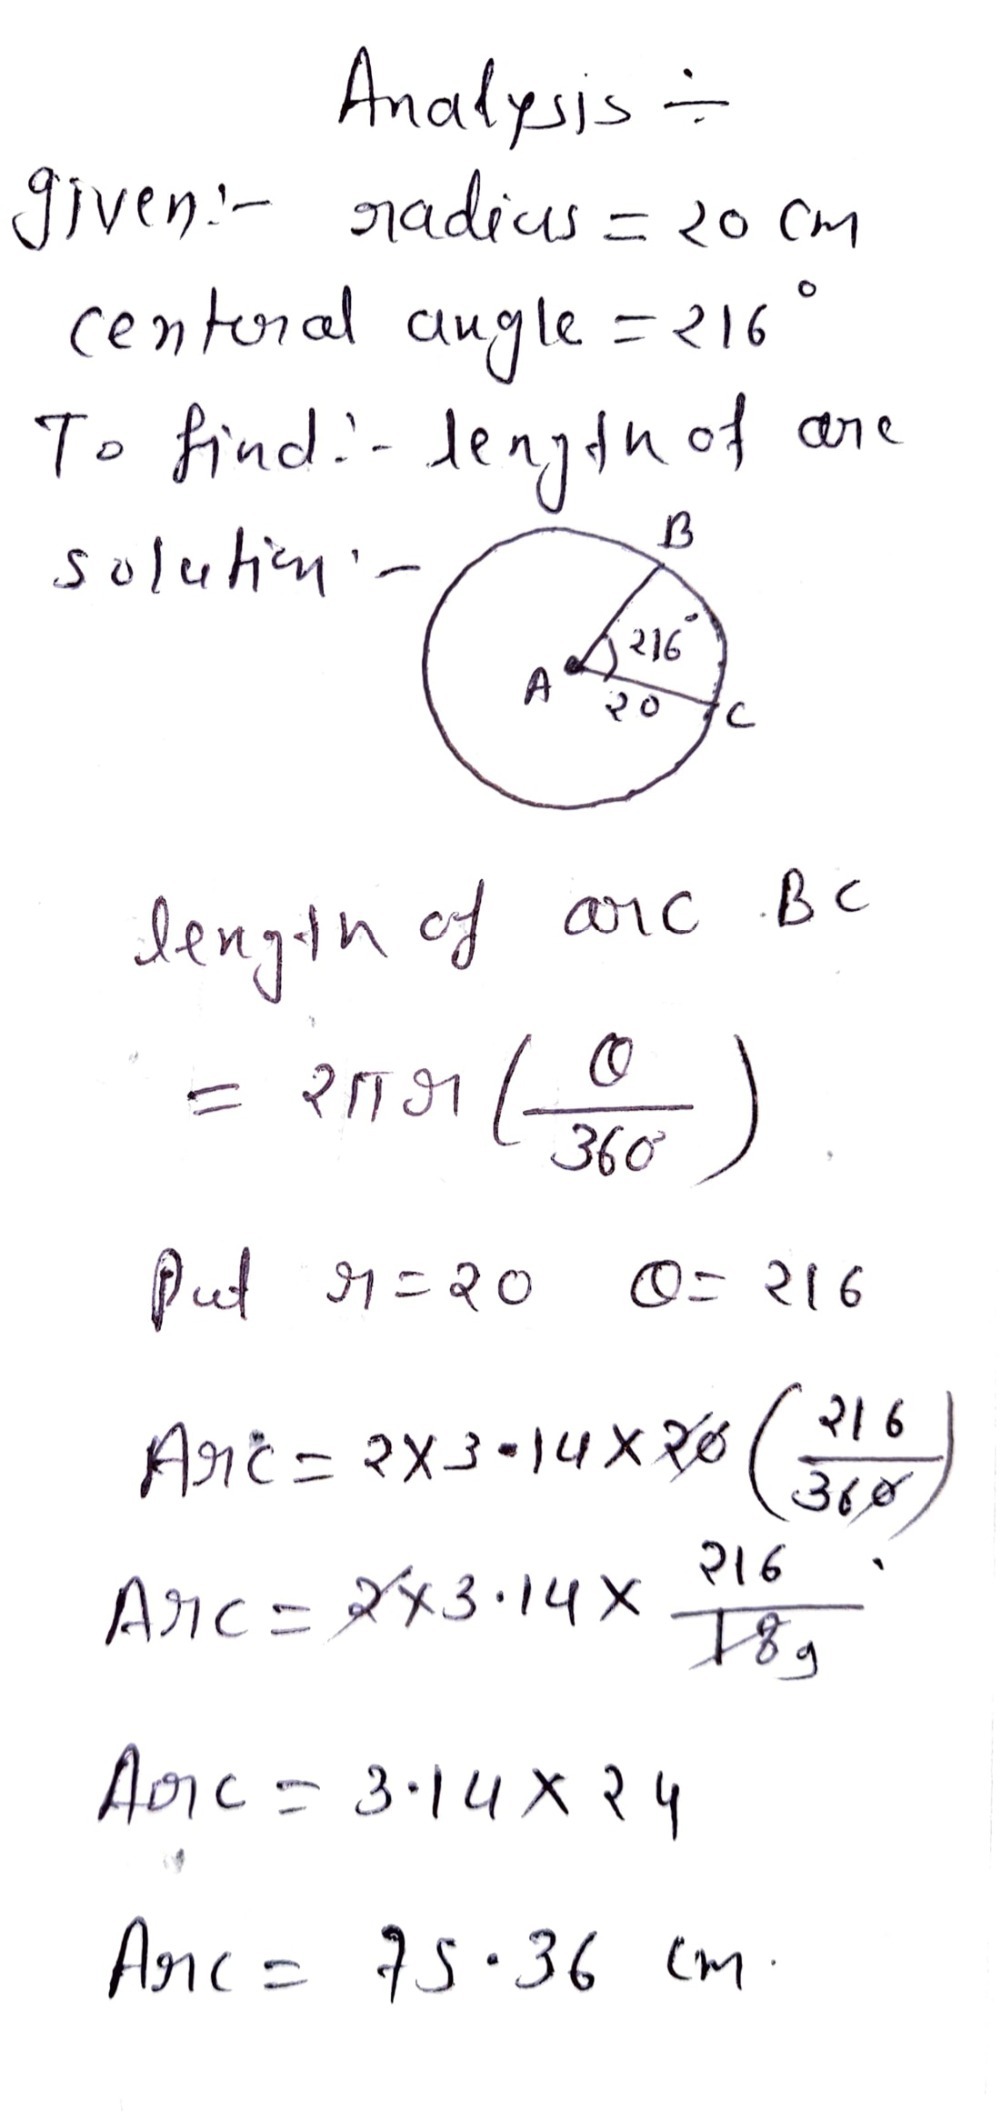 Analysis ÷
given:- radius = 20 cm
central angle = 216°
To find:- length of arc
solution:-
B
216°
A
20
C
length of arc BC
= 2πr (θ/360°)
Put r = 20 θ = 216
Arc = 2×3.14×20 (216/360)
Arc = 2×3.14× 216/18 9
Arc = 3.14×24
Arc = 75.36 cm.